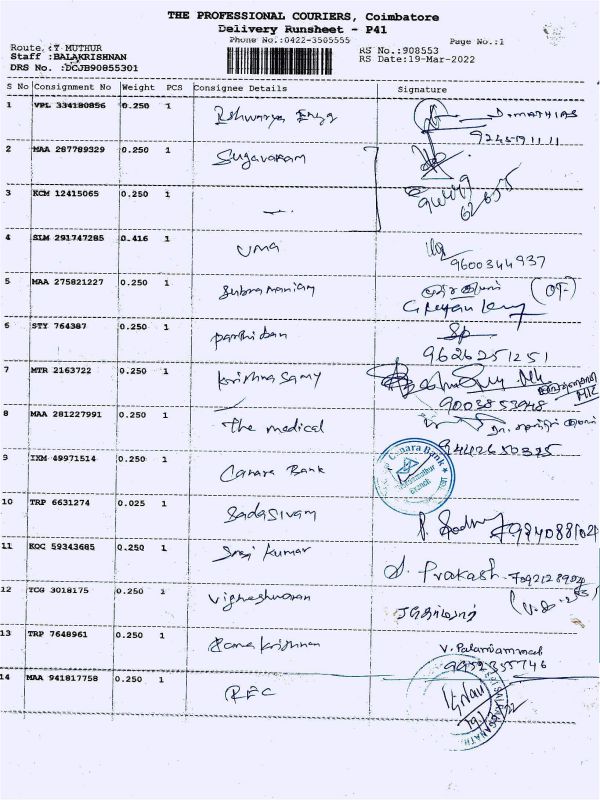 THE PROFESSIONAL COURIERS, Coimbatore
Delivery Runsheet - P41
Phone No.:0422-3505555
Page No.:1
Route :T MUTHUR
RS No.:908553
Staff :BALAKRISHNAN
RS Date:19-Mar-2022
DRS No. :DCJB90855301
S No Consignment No Weight PCS Consignee Details Signature
1 VPL 334180856 0.250 1
D. MATHIAS
2 MAA 287789329 0.250 1 Sugavanam
3 KCM 12415065 0.250 1
62655
4 SLM 291747285 0.416 1 UMA
9600344937
5 MAA 275821227 0.250 1 Subramaniam
6 STY 764387 0.250 1 parthiban
9626251251
7 MTR 2163722 0.250 1 krishnasamy
9003853948
8 MAA 281227991 0.250 1 The medical
9442650325
9 IXM 49971514 0.250 1 Canara Bank
Canara Bank
10 TRP 6631274 0.025 1 Sadasivam
11 KOC 59343685 0.250 1 Sasi kumar
S. Prakash
12 TCG 3018175 0.250 1 vigneshwaran
13 TRP 7648961 0.250 1 Ramakrishnan
V. Palaniammal
9952355746
14 MAA 941817758 0.250 1 REC